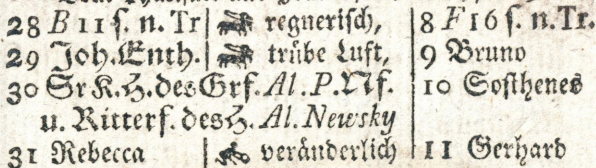 28 B 11 s. n. Tr | regnerisch, | 8 F 16 s. n. Tr.
29 Joh. Enth. | trübe Luft, | 9 Bruno
30 Sr K. H. des Grf. Al. P. Nf. | 10 Sosthenes
u. Ritterf. des H. Al. Newsky
31 Rebecca | veränderlich | 11 Gerhard